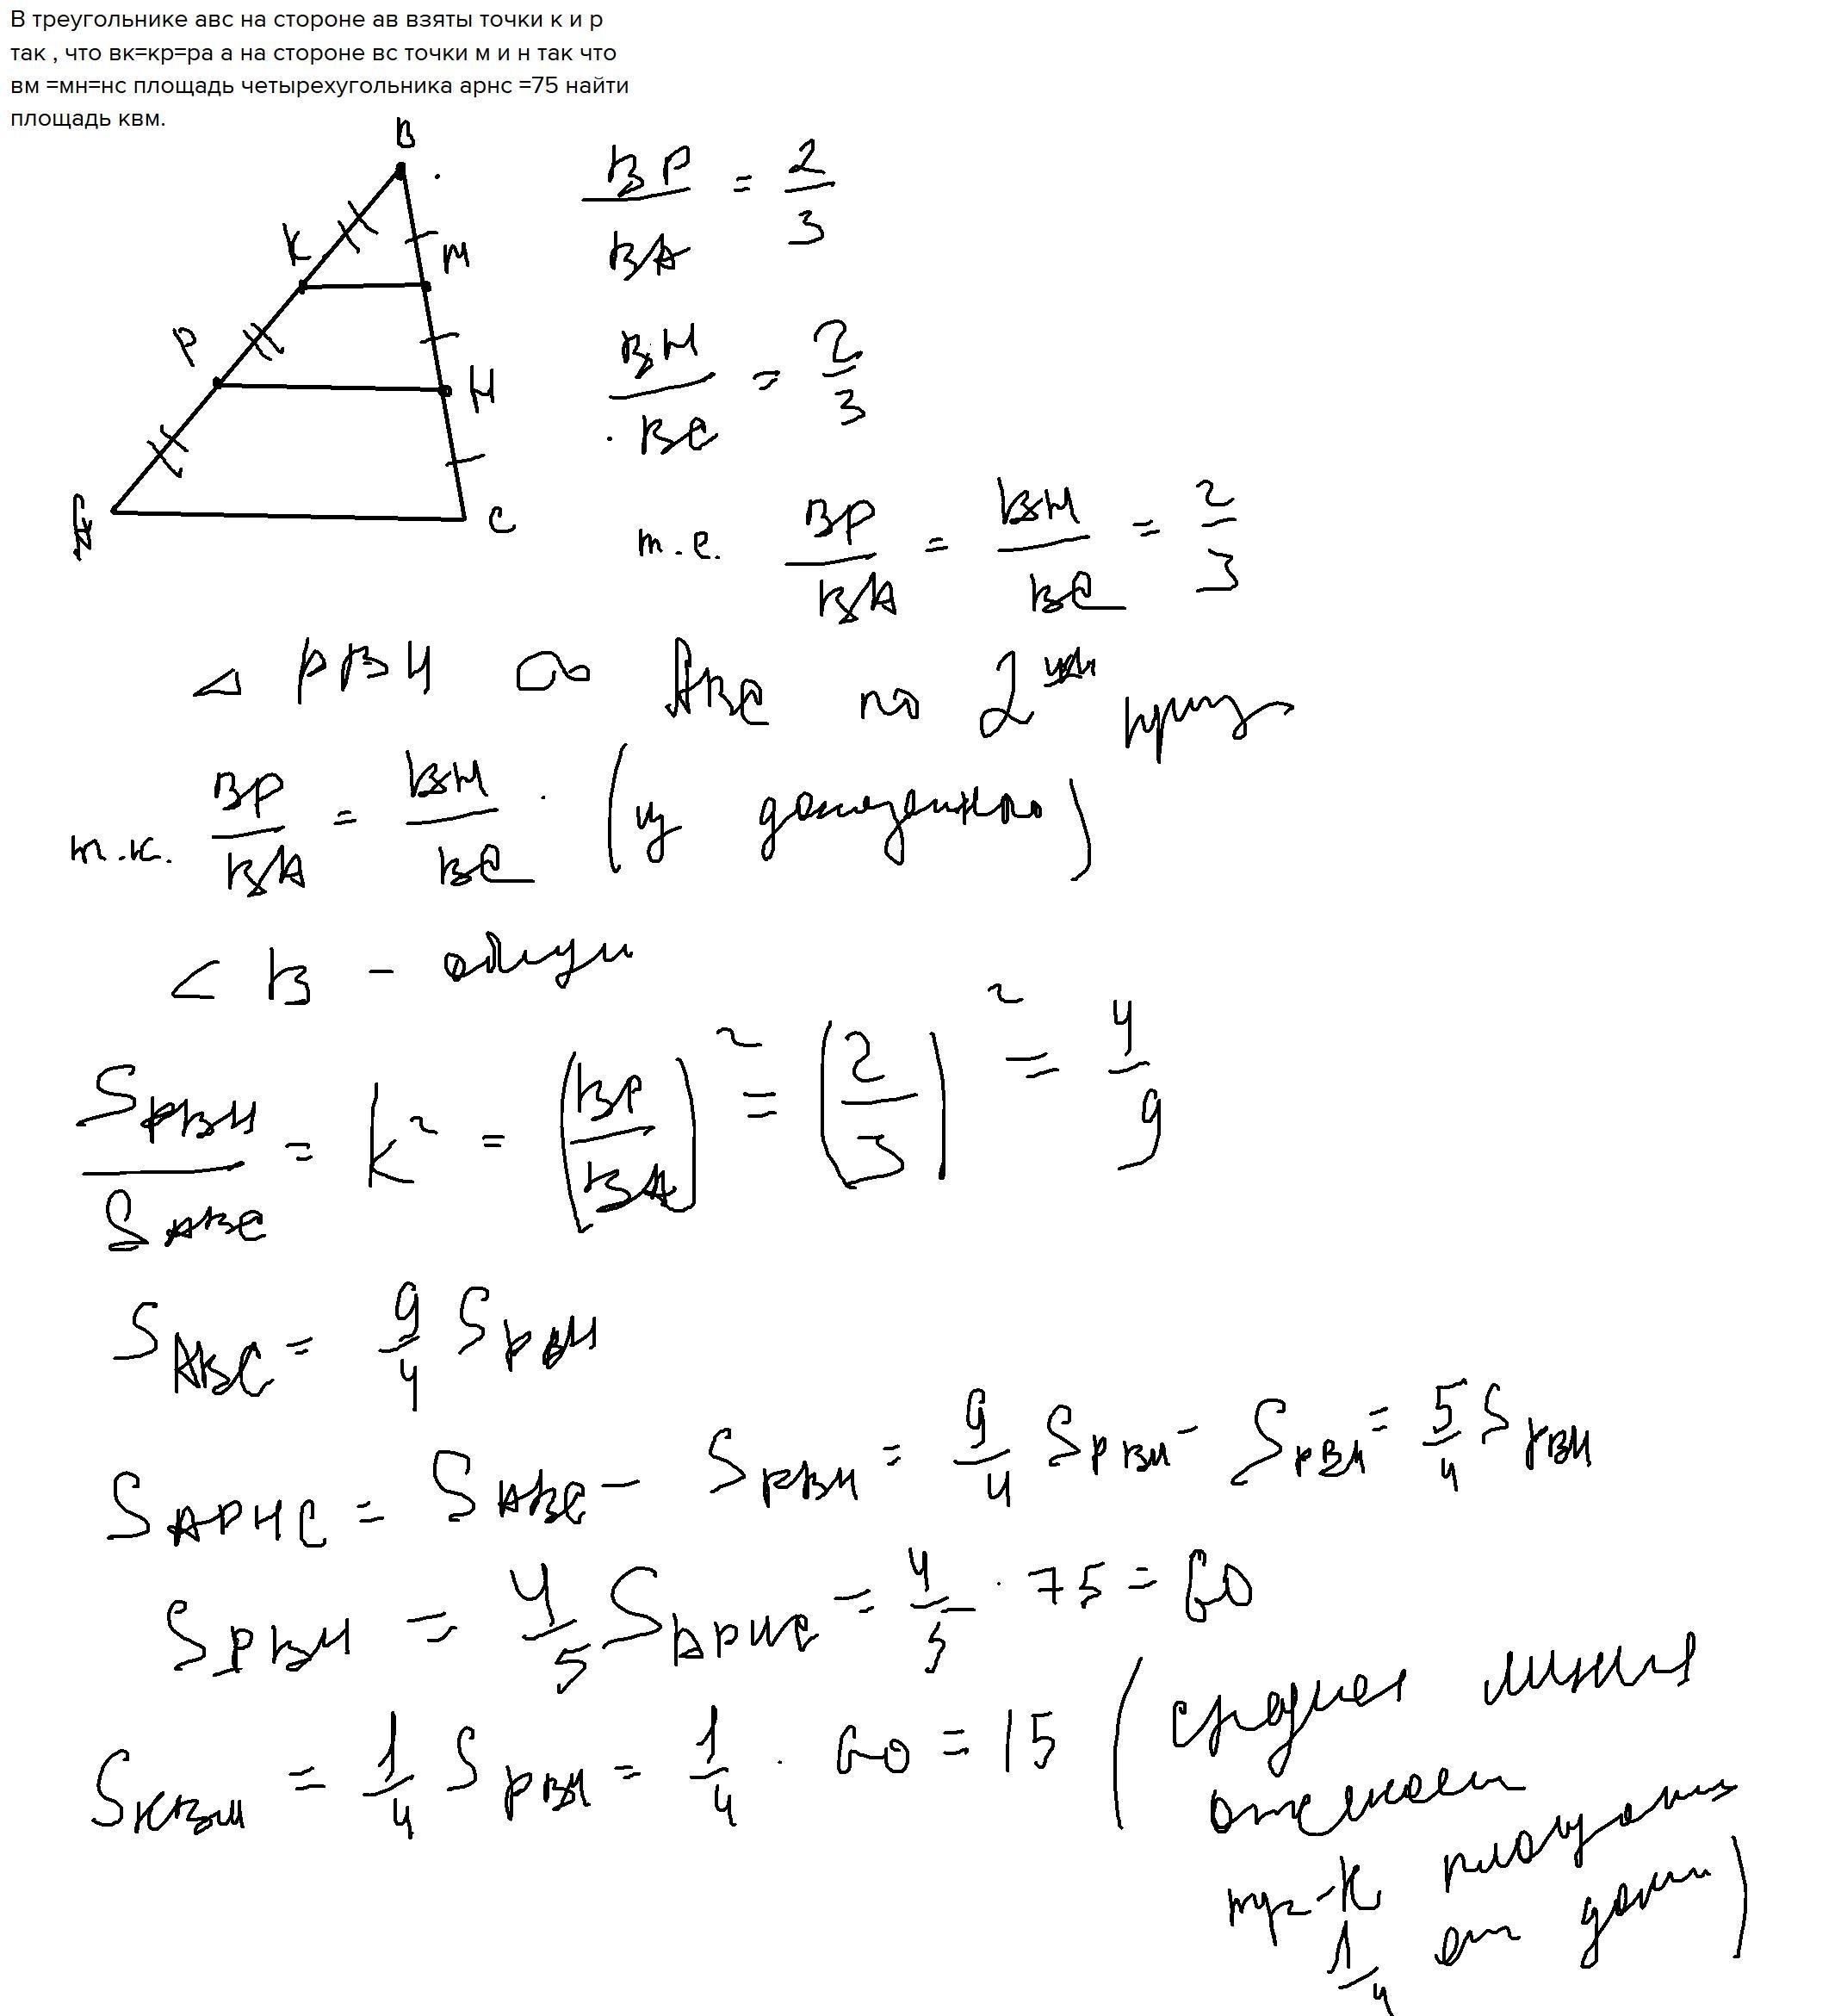 В треугольнике авс на стороне ав взяты точки к и р
так , что вк=кр=ра а на стороне вс точки м и н так что
вм =мн=нс площадь четырехугольника арнс =75 найти
площадь квм.
B
K
M
P
H
A
C
BP/BA = 2/3
BH/BC = 2/3
т.е. BP/BA = BH/BC = 2/3
△ PBH ∞ ABC по 2 приз
т.к. BP/BA = BH/BC (из доказанного)
< B - общий
S PBH / S ABC = k² = (BP/BA)² = (2/3)² = 4/9
S ABC = 9/4 S PBH
S APHC = S ABC - S PBH = 9/4 S PBH - S PBH = 5/4 S PBH
S PBH = 4/5 S APHC = 4/5 · 75 = 60
S KBM = 1/4 S PBH = 1/4 · 60 = 15 (средняя линия
отсекает
тр-к площадь
1/4 от данн)